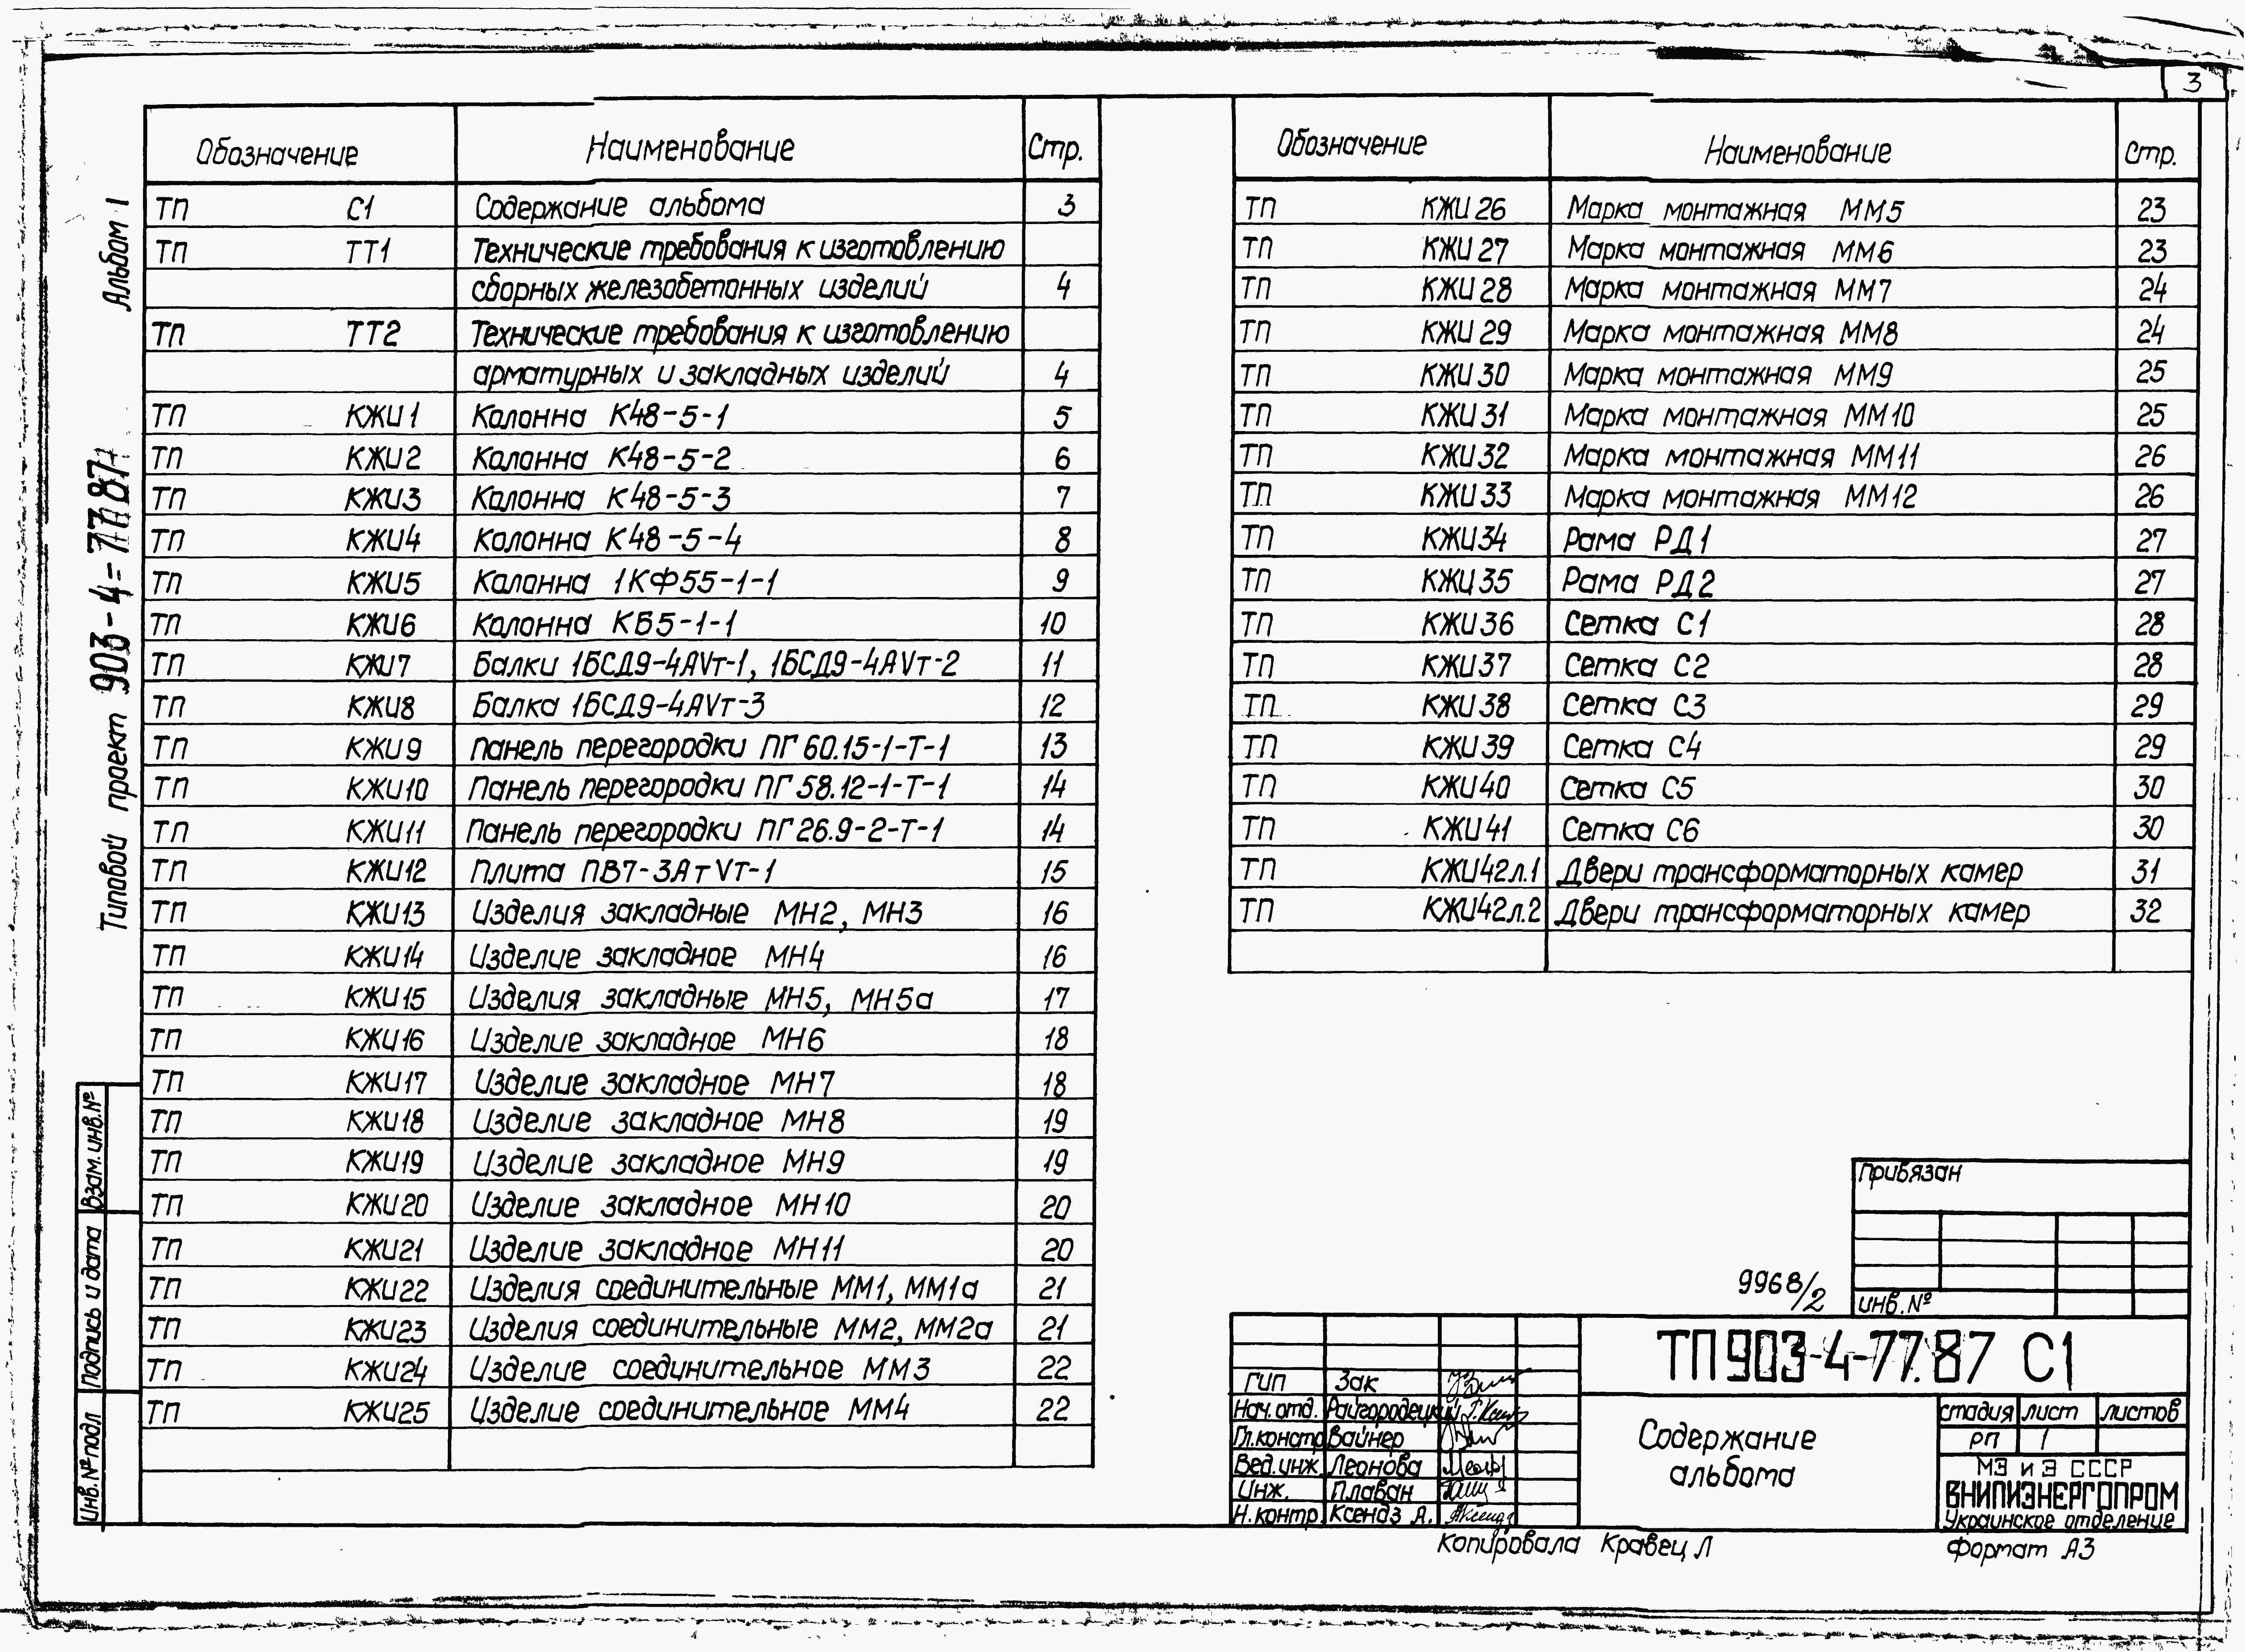 3
Альбом 1
Типовой проект 903-4-77.87
Обозначение Наименование Стр.
ТП С1 Содержание альбома 3
ТП ТТ1 Технические требования к изготовлению
сборных железобетонных изделий 4
ТП ТТ2 Технические требования к изготовлению
арматурных и закладных изделий 4
ТП КЖИ1 Колонна К48-5-1 5
ТП КЖИ2 Колонна К48-5-2 6
ТП КЖИ3 Колонна К48-5-3 7
ТП КЖИ4 Колонна К48-5-4 8
ТП КЖИ5 Колонна 1КФ55-1-1 9
ТП КЖИ6 Колонна КБ5-1-1 10
ТП КЖИ7 Балки 1БСД9-4АVт-1, 1БСД9-4АVт-2 11
ТП КЖИ8 Балка 1БСД9-4АVт-3 12
ТП КЖИ9 Панель перегородки ПГ 60.15-1-Т-1 13
ТП КЖИ10 Панель перегородки ПГ 58.12-1-Т-1 14
ТП КЖИ11 Панель перегородки ПГ 26.9-2-Т-1 14
ТП КЖИ12 Плита ПВ7-3АтVт-1 15
ТП КЖИ13 Изделия закладные МН2, МН3 16
ТП КЖИ14 Изделие закладное МН4 16
ТП КЖИ15 Изделия закладные МН5, МН5а 17
ТП КЖИ16 Изделие закладное МН6 18
ТП КЖИ17 Изделие закладное МН7 18
ТП КЖИ18 Изделие закладное МН8 19
ТП КЖИ19 Изделие закладное МН9 19
ТП КЖИ20 Изделие закладное МН10 20
ТП КЖИ21 Изделие закладное МН11 20
ТП КЖИ22 Изделия соединительные ММ1, ММ1а 21
ТП КЖИ23 Изделия соединительные ММ2, ММ2а 21
ТП КЖИ24 Изделие соединительное ММ3 22
ТП КЖИ25 Изделие соединительное ММ4 22
Обозначение Наименование Стр.
ТП КЖИ26 Марка монтажная ММ5 23
ТП КЖИ27 Марка монтажная ММ6 23
ТП КЖИ28 Марка монтажная ММ7 24
ТП КЖИ29 Марка монтажная ММ8 24
ТП КЖИ30 Марка монтажная ММ9 25
ТП КЖИ31 Марка монтажная ММ10 25
ТП КЖИ32 Марка монтажная ММ11 26
ТП КЖИ33 Марка монтажная ММ12 26
ТП КЖИ34 Рама РД1 27
ТП КЖИ35 Рама РД2 27
ТП КЖИ36 Сетка С1 28
ТП КЖИ37 Сетка С2 28
ТП КЖИ38 Сетка С3 29
ТП КЖИ39 Сетка С4 29
ТП КЖИ40 Сетка С5 30
ТП КЖИ41 Сетка С6 30
ТП КЖИ42л.1 Двери трансформаторных камер 31
ТП КЖИ42л.2 Двери трансформаторных камер 32
Взам. инв. №
Подпись и дата
Инв. № подл
Привязан
инв. №
9968/2
ТП 903-4-77.87 С1
ГИП Зак
Нач. отд. Райгородецкий
Гл.констр Вайнер
Вед. инж. Леонова
Инж. Плаван
Н. контр. Ксендз А.
Содержание
альбома
стадия лист листов
РП 1
МЭ и Э СССР
ВНИПИЭНЕРГОПРОМ
Украинское отделение
Копировала Кравец Л
Формат А3